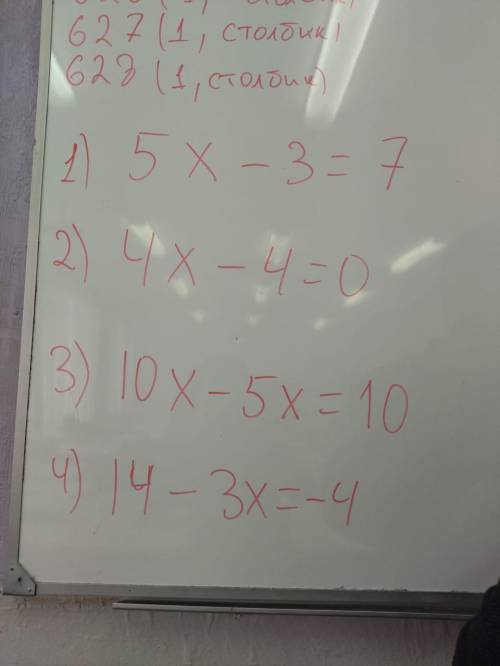 627 (1, столбик)
623 (1, столбик)
1) 5x - 3 = 7
2) 4x - 4 = 0
3) 10x - 5x = 10
4) 14 - 3x = -4